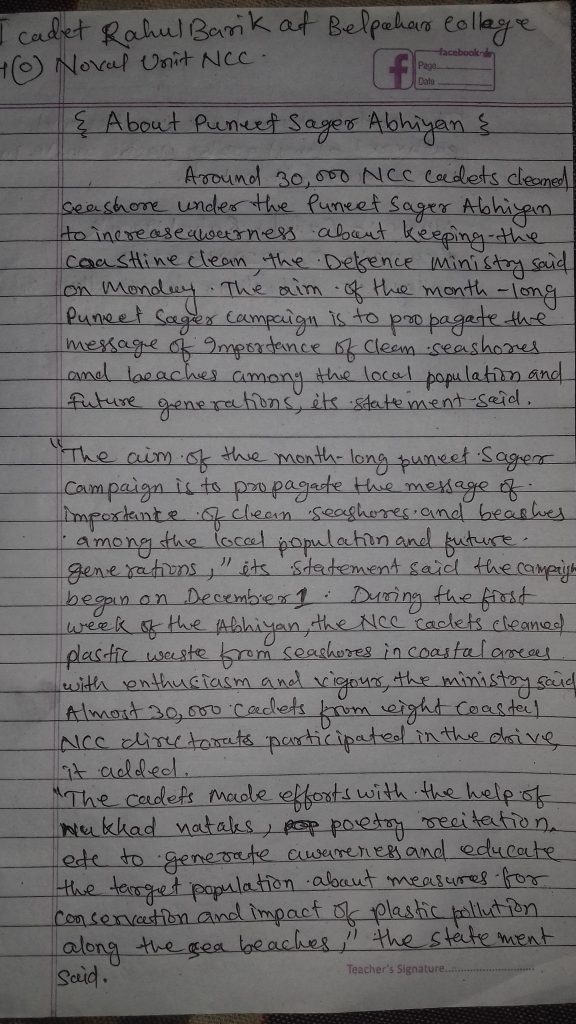 I cadet Rahul Barik at Belpahar College
(O) Noval Unit NCC.
facebook
f
Page
Date
{ About Puneet Sager Abhiyan }
Around 30,000 NCC cadets cleaned
seashore under the Puneet Sager Abhiyan
to increase awarness about keeping the
coastline clean, the Defence Ministry said
on Monday. The aim of the month-long
Puneet Sager Campaign is to propagate the
message of Importance of Clean seashores
and beaches among the local population and
future generations, its statement said.
"The aim of the month-long puneet Sager
Campaign is to propagate the message of
importante of clean seashores and beashes
among the local population and future
generations," its statement said the campaign
began on December 1. During the first
week of the Abhiyan, the NCC cadets cleaned
plastic waste from seashores in coastal areas
with enthusiasm and vigour, the ministry said
Almost 30,000 cadets from eight Coastal
NCC directorats participated in the drive,
it added.
"The cadets made efforts with the help of
Nukhad nataks, poetry recitation,
etc to generate awareness and educate
the target population about measures for
conservation and impact of plastic pollution
along the sea beaches," the statement
said.
Teacher's Signature